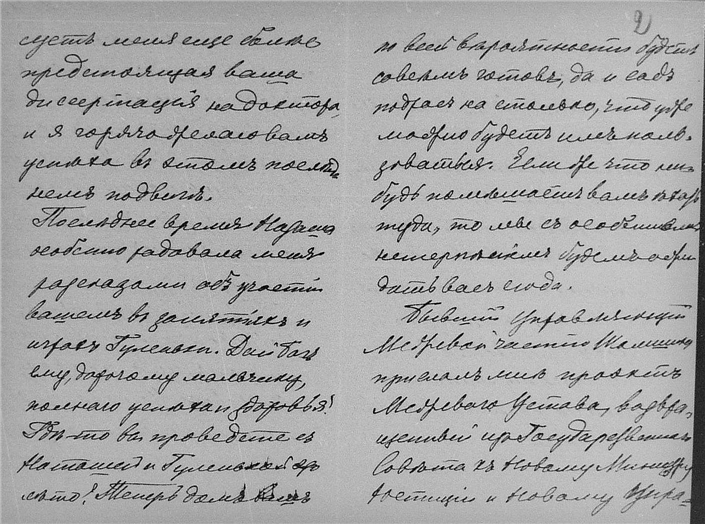 2
сустъ меня еще более
предстоящая ваша
диссертація на Доктора,
и я горячо желаю вамъ
успѣха въ этомъ послѣд-
немъ подвигѣ.
Послѣднее время Наташа
особенно радовала меня
разсказами объ участіи
вашемъ въ занятіяхъ и
играхъ Гуленьки. Дай Богъ
ему, дорогому мальчику,
полнаго успѣха и здоровья!
Гдѣ-то вы проведете съ
Наташей и Гуленькой
лѣто? Теперь домъ вашъ
по всей вѣроятности будетъ
совсѣмъ готовъ, да и садъ
подросъ на столько, что уже
можно будетъ имъ поль-
зоваться. Если же что ни-
будь помѣшаетъ вамъ ѣхать
туда, то мы съ особеннымъ
нетерпѣніемъ будемъ ожи-
дать васъ сюда.
Бывшій Управляющій
Межевой частію
прислалъ мнѣ проэктъ
Межеваго Устава, возвра-
щенный изъ Государственнаго
Совѣта къ Новому Министру
Юстиціи и Новому Упра-